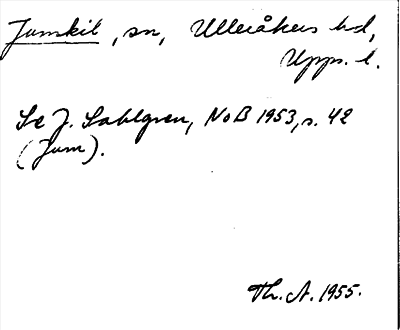 Jumkil, sn, Ulleråkers hd,
Upps. l.
Se J. Sahlgren, NoB 1953, s. 42
(Jum).
Th. A. 1955.